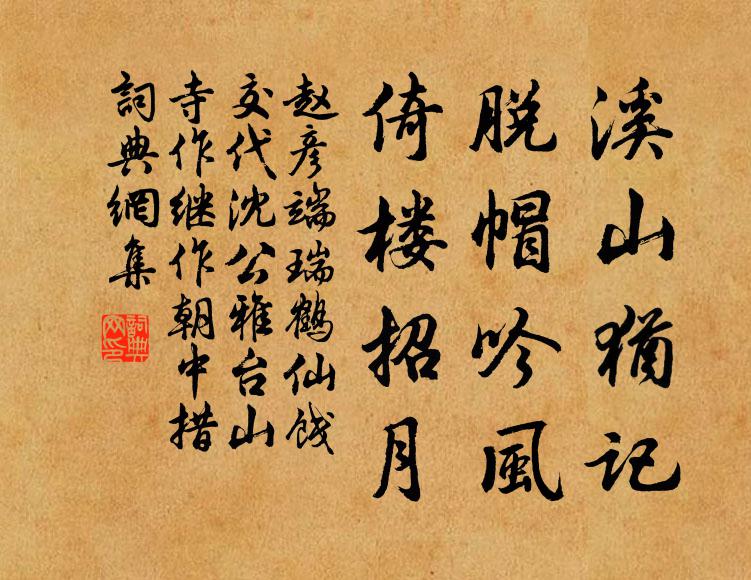 溪山猶记
脱帽吟風
倚楼招月
赵彦端瑞鹤仙饯
交代沈公雅台山
寺作继作朝中措
詞典網集
詞典
网印